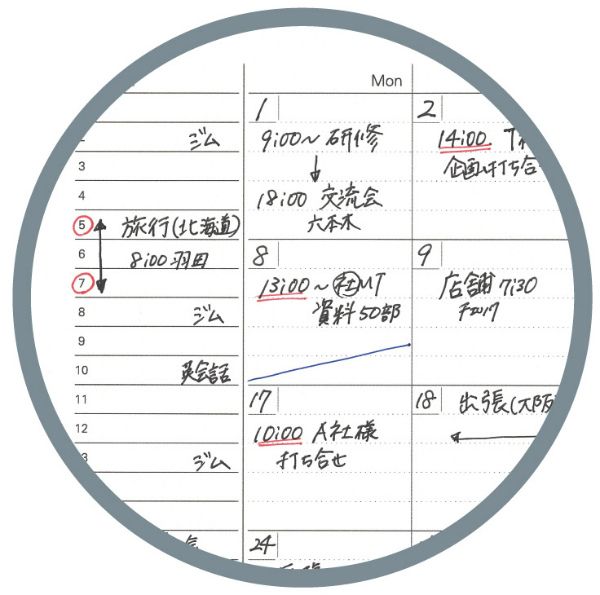 Mon
ジム
3
4
5 旅行(北海道)
6 8:00 羽田
7
8 ジム
9
10 英会話
11
12
ジム
1
9:00〜 研修
18:00 交流会
六本木
2
14:00
企画打ち合
8
13:00〜 社MT
資料50部
9
店舗 7:30
チェック
17
10:00 A社様
打ち合せ
18 出張(大阪
24